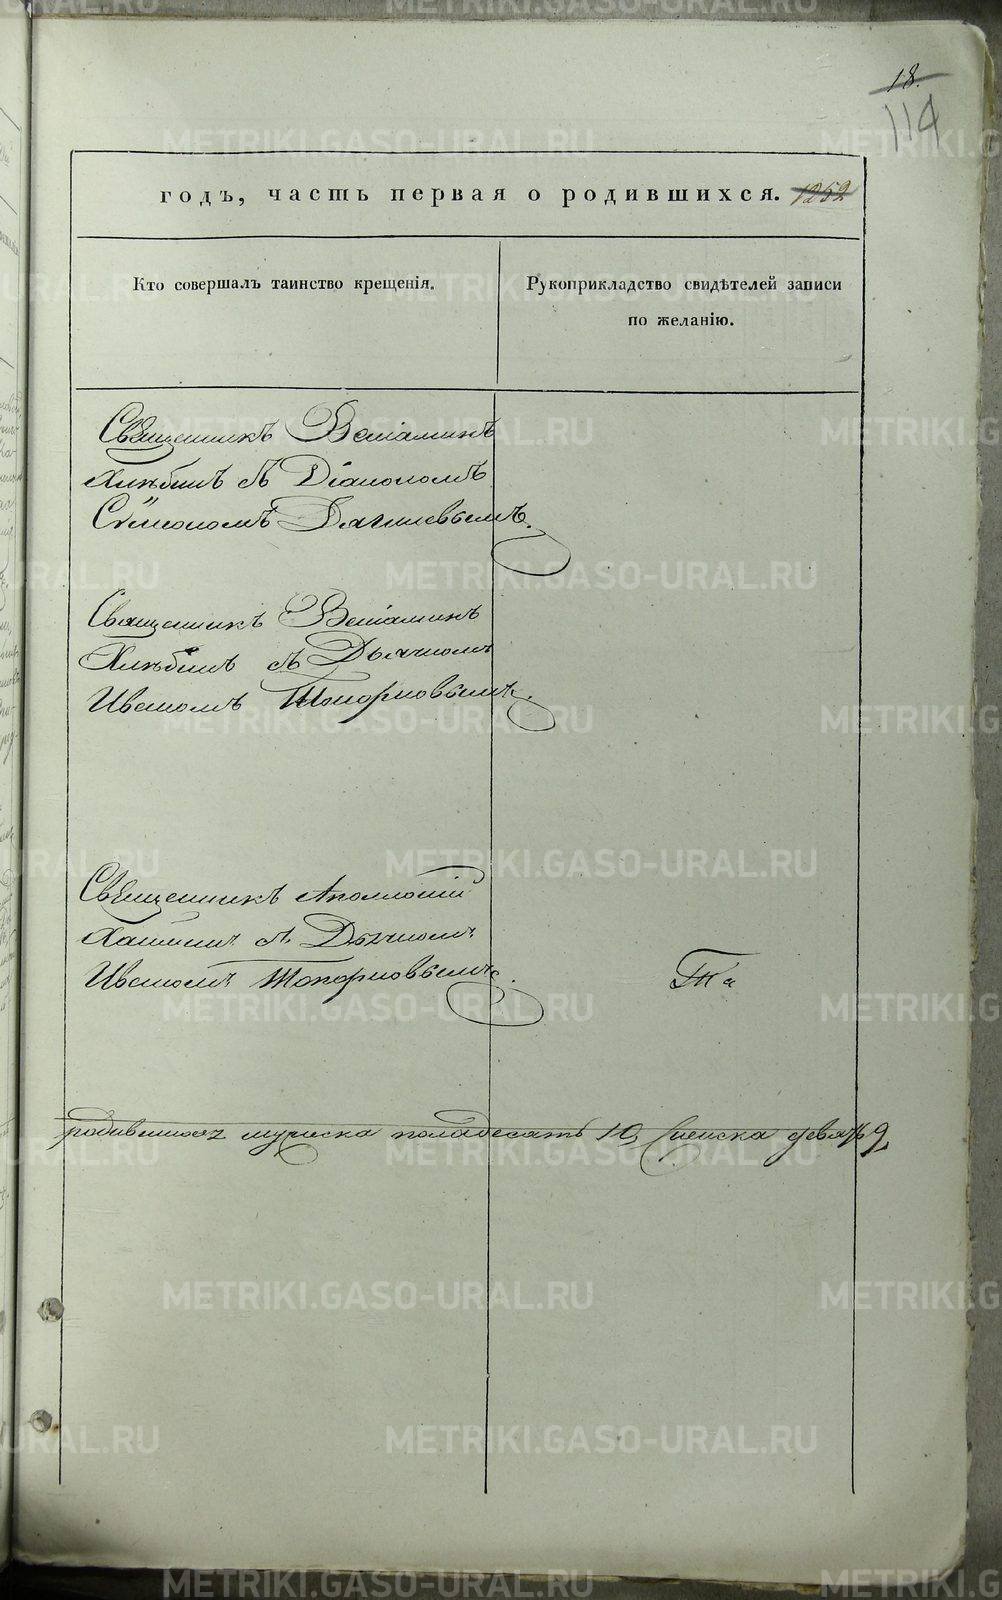 18.
114
годъ, часть первая о родившихся. 1252
Кто совершалъ таинство крещенія.
Рукоприкладство свидѣтелей записи
по желанію.
Священникъ Веніаминъ
Хлѣбинъ съ Діакономъ
Сѵмеономъ Дягилевымъ.
Священникъ Веніаминъ
Хлѣбинъ съ Дьячкомъ
Иваномъ Топорковымъ.
Священникъ Аполлоній
съ Дьячкомъ
Иваномъ Топорковымъ.
родившихся мужеска поладесять 10, женска девять 9,
METRIKI.GASO-URAL.RU